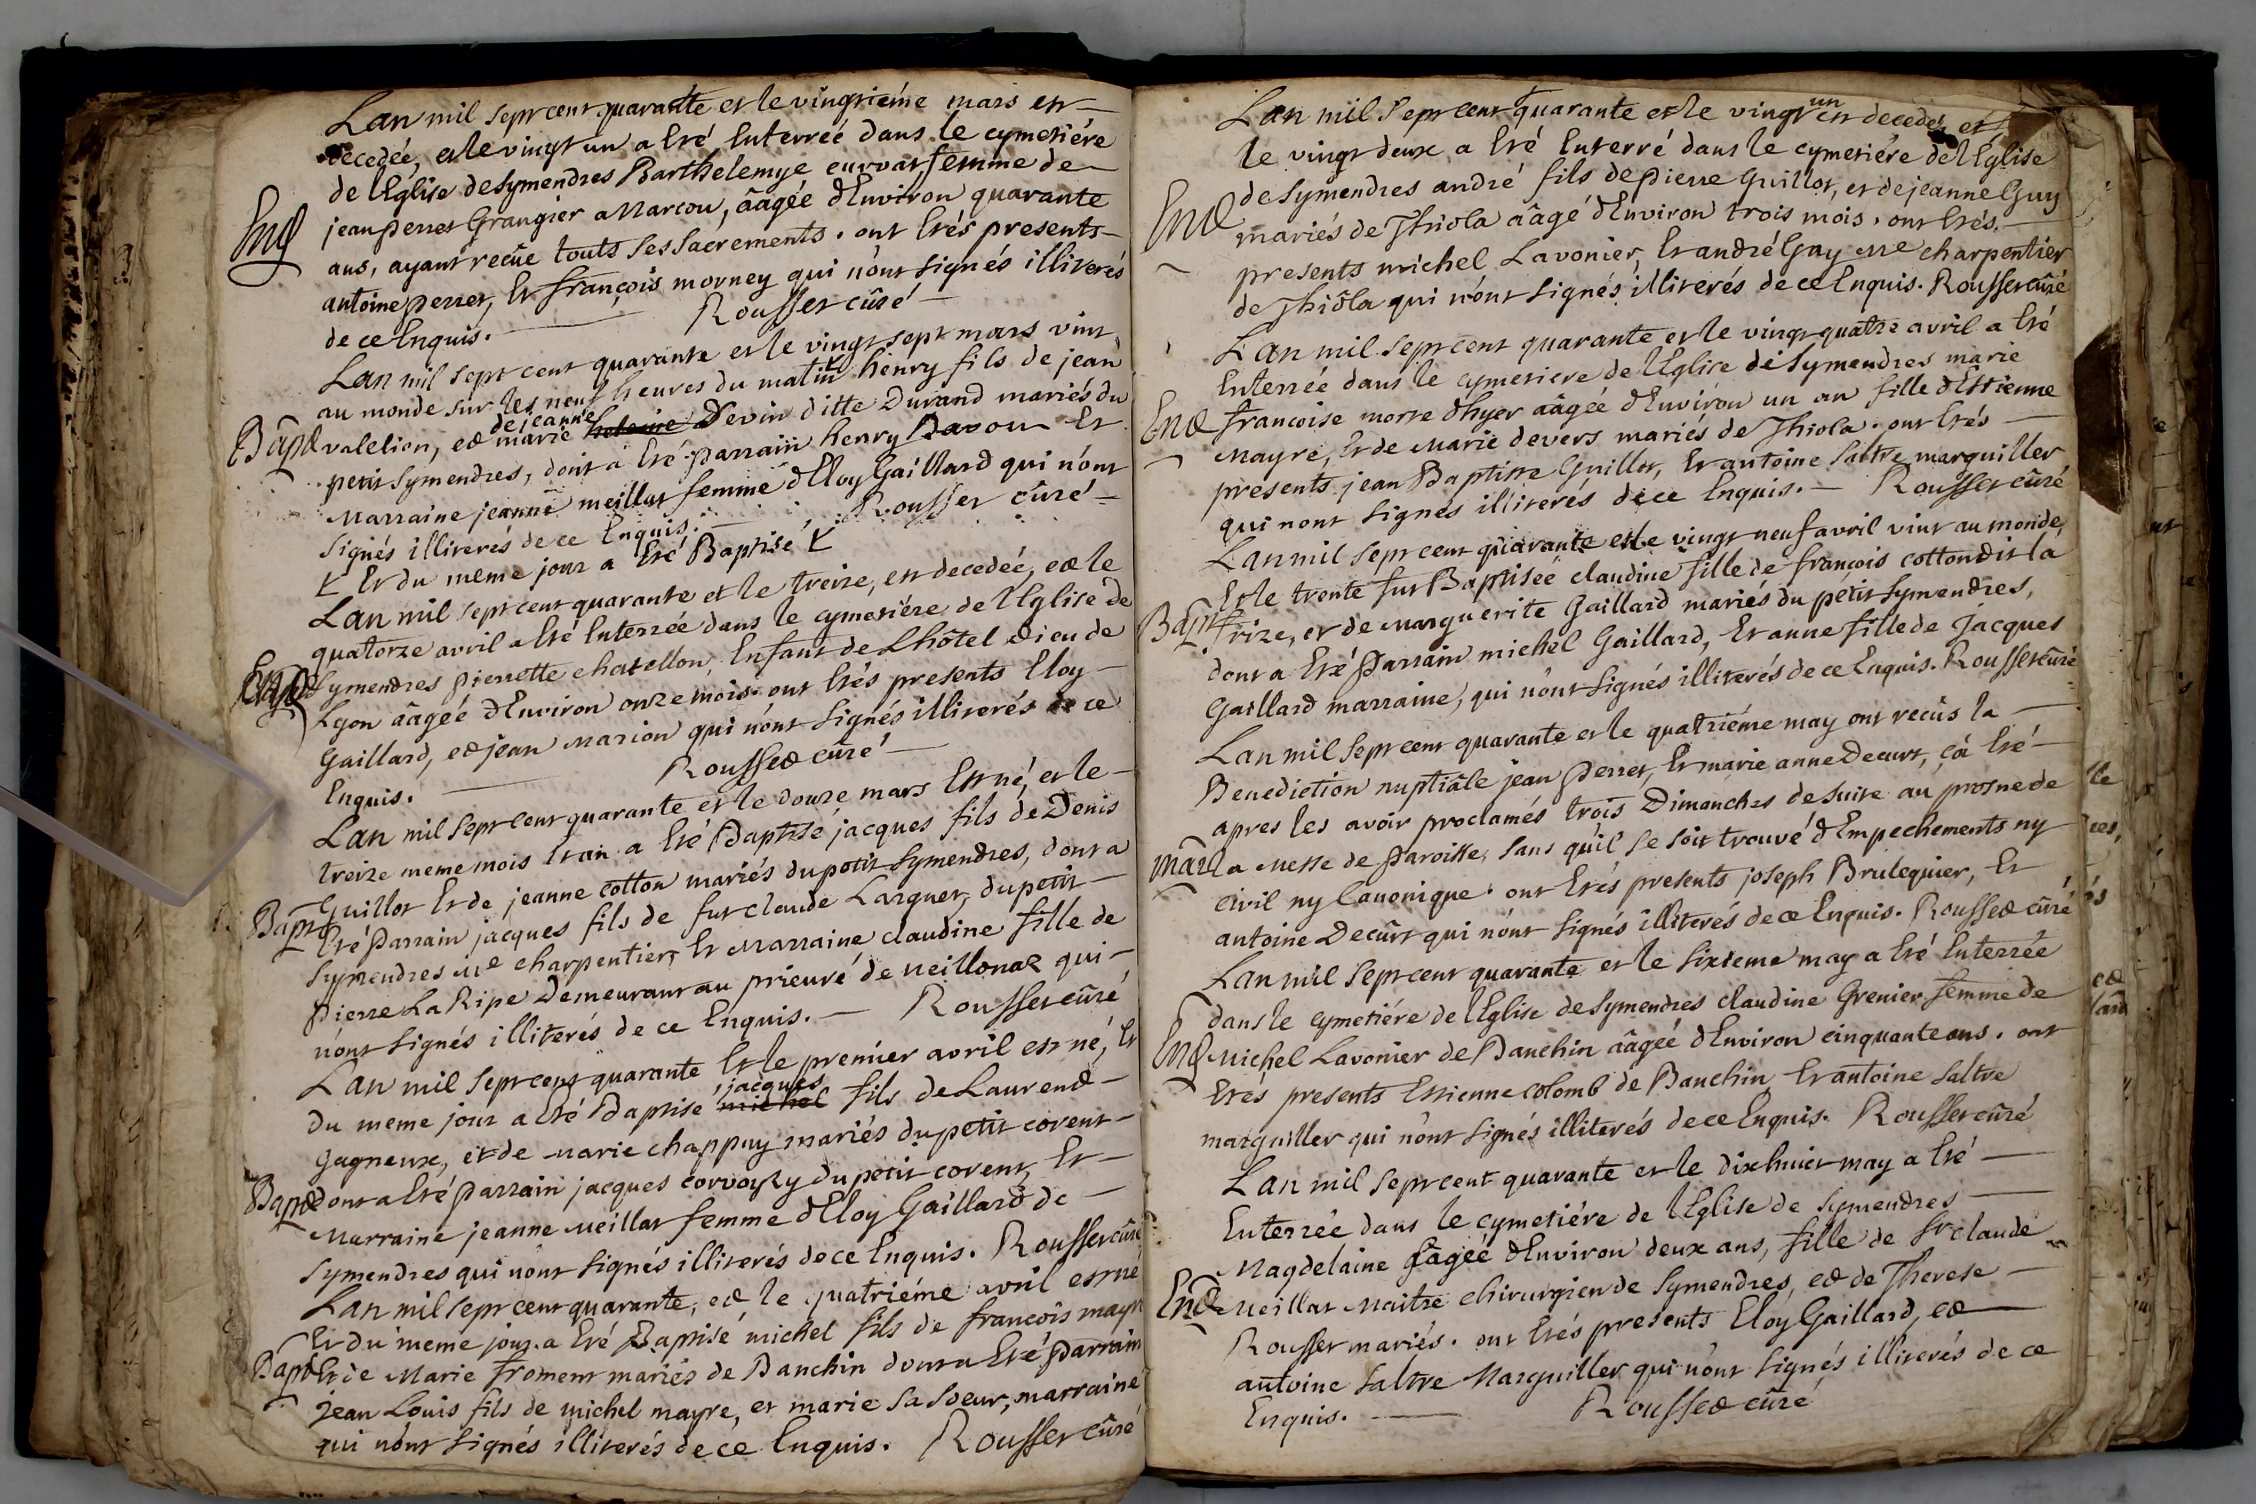 Lan mil sept cent quarante et le vingtiéme mars est
decedeé, et le vingt un a Eté Enterreé dans le cymetiére
de lEglise de Symendres Barthelemye curvat, femme de
Ent
jean perret Grangier a Marcou, âageé dEnviron quarante
ans, ayant reçûe touts ses sacrements. ont Etés presents
antoine perret, Et françois morney qui n'ont signés illiterés
de ce Enquis. Rousset cûré
Lan mil sept cent quarante et le vingt sept mars vint
au monde sur les neuf heures du matin henry fils de jean
de jeanne
Bapt
valetion, et marie Devin ditte Durand mariés du
petit Symendres, dont a Eté parrain henry Et
Marraine jeanne meillat femme dEloy Gaillard qui n'ont
signés illiterés de ce Enquis. Rousset cûré
Et du meme jour a Eté Baptisé
Lan mil sept cent quarante et le treize, est decedeé, et le
quatorze avril a Eté Enterreé dans le cymetiére de lEglise de
Ent
Symendres pierrette chatellon, Enfant de Lhôtel Dieu de
Lyon âageé dEnviron onze mois. ont Etés presents Eloy
Gaillard, et jean Marion qui n'ont signés illiterés de ce
Enquis. Rousset cûré
Lan mil sept cent quarante et le douze mars Est né, et le
treize meme mois Et an a Eté Baptisé jacques fils de Denis
Bapt
Guillot Et de jeanne cotton mariés du petit Symendres, dont a
Eté parrain jacques fils de fut claude Larguet, du petit
Symendres Me charpentier, Et Marraine claudine fille de
pierre La Ripe Demeurant au prieuré de neillonaz qui
n'ont signés illiterés de ce Enquis. Rousset cûré
Lan mil sept cent quarante Et le premier avril est né, Et
jacques
du meme jour a Eté Baptisé michel fils de Laurend
Gagneux, et de Marie chappuy mariés du petit corent
Bapt
dont a Eté parrain jacques corvoysy du petit corent, Et
Marraine jeanne Meillat femme dEloy Gaillard de
Symendres qui n'ont signés illiterés de ce Enquis. Rousset cûré
Lan mil sept cent quarante, et le quatriéme avril est né
Et du meme jour a Eté Baptisé michel fils de françois mayre
Bapt
Et de Marie froment mariés de Banchin dont a Eté parrain
jean Louis fils de michel mayre, et marie sa soeur, marraine
qui n'ont signés illiterés de ce Enquis. Rousset cûré
un
Lan mil sept cent quarante et le vingt est decedé, et
le vingt deux a Eté Enterré dans le cymetiére de lEglise
de Symendres andré fils de pierre Guillot, et de jeanne Guy
Ent
mariés de Thiola âagé dEnviron trois mois. ont Etés
presents michel Lavonier, Et andré Gay Me charpentier
de Thiola qui n'ont signés illiterés de ce Enquis. Rousset cûré
Lan mil sept cent quarante et le vingt quatre avril a Eté
Enterreé dans le cymetiere de lEglise de Symendres marie
Ent
francoise morte dhyer âageé dEnviron un an fille dEstienne
Mayre, Et de Marie devers mariés de Thiola. ont Etés
presents jean Baptiste Guillot, Et antoine Saltre marguiller
qui n'ont signés illiterés de ce Enquis. Rousset cûré
Lan mil sept cent quarante et le vingt neuf avril vint au monde,
Et le trente fut Baptiseé claudine fille de françois cotton dit la
Bapt
frize, et de Marguerite Gaillard mariés du petit Symendres,
dont a Eté Parrain michel Gaillard, Et anne fille de jacques
Gaillard marraine, qui n'ont signés illiterés de ce Enquis. Rousset cûré
Lan mil sept cent quarante et le quatriéme may ont reçûs la
Benediction nuptiâle jean perret, Et marie anne Decurt, ça Eté
apres les avoir proclamés trois Dimanches de suite au prosne de
Mar
la Messe de paroisse, sans qu'il se soit trouvé dEmpechements ny
civil ny Canonique. ont Etés presents joseph Brulequier, Et
antoine Decûrt qui n'ont signés illiterés de ce Enquis. Rousset cûré
Lan mil sept cent quarante et le sixieme may a Eté Enterreé
dans le cymetiére de lEglise de Symendres claudine Grenier femme de
Ent
Michel Lavonier de Banchin âageé dEnviron cinquante ans. ont
Etés presents Estienne colomb de Banchin Et antoine Saltre
marguiller qui n'ont signés illiterés de ce Enquis. Rousset cûré
Lan mil sept cent quarante et le dixhuit may a Eté
Enterreé dans le cymetiére de lEglise de Symendres
Magdelaine âageé dEnviron deux ans, fille de Sr claude
Ent
Meillat Maitre chirurgien de Symendres, et de Therese
Rousset mariés. ont Etés presents Eloy Gaillard, et
antoine Saltre Marguiller qui n'ont signés illiterés de ce
Enquis. Rousset cûré